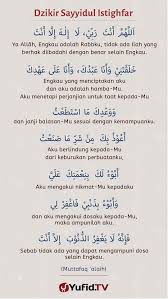 Dzikir Sayyidul Istighfar
اَللَّهُمَّ أَنْتَ رَبِّيْ، لَا إِلَـهَ إِلَّا أَنْتَ
Ya Allâh, Engkau adalah Rabbku, tidak ada ilah yang
berhak diibadahi dengan benar selain Engkau.
خَلَقْتَنِيْ وَأَنَا عَبْدُكَ، وَأَنَا عَلَى عَهْدِكَ
Engkau yang menciptakan aku
dan aku adalah hamba-Mu.
Aku menetapi perjanjian untuk taat kepada-Mu
وَوَعْدِكَ مَا اسْتَطَعْتُ
dan janji balasan-Mu sesuai dengan kemampuanku.
أَعُوْذُ بِكَ مِنْ شَرِّ مَا صَنَعْتُ
Aku berlindung kepada-Mu
dari keburukan perbuatanku,
أَبُوْءُ لَكَ بِنِعْمَتِكَ عَلَيَّ
Aku mengakui nikmat-Mu kepadaku
وَأَبُوْءُ بِذَنْبِيْ فَاغْفِرْ لِيْ
dan aku mengakui dosaku kepada-Mu,
maka ampunilah aku.
فَإِنَّهُ لَا يَغْفِرُ الذُّنُوْبَ إِلَّا أَنْتَ
Sebab tidak ada yang dapat mengampuni dosa
selain Engkau.
(Muttafaq 'alaih)
YUFID.TV